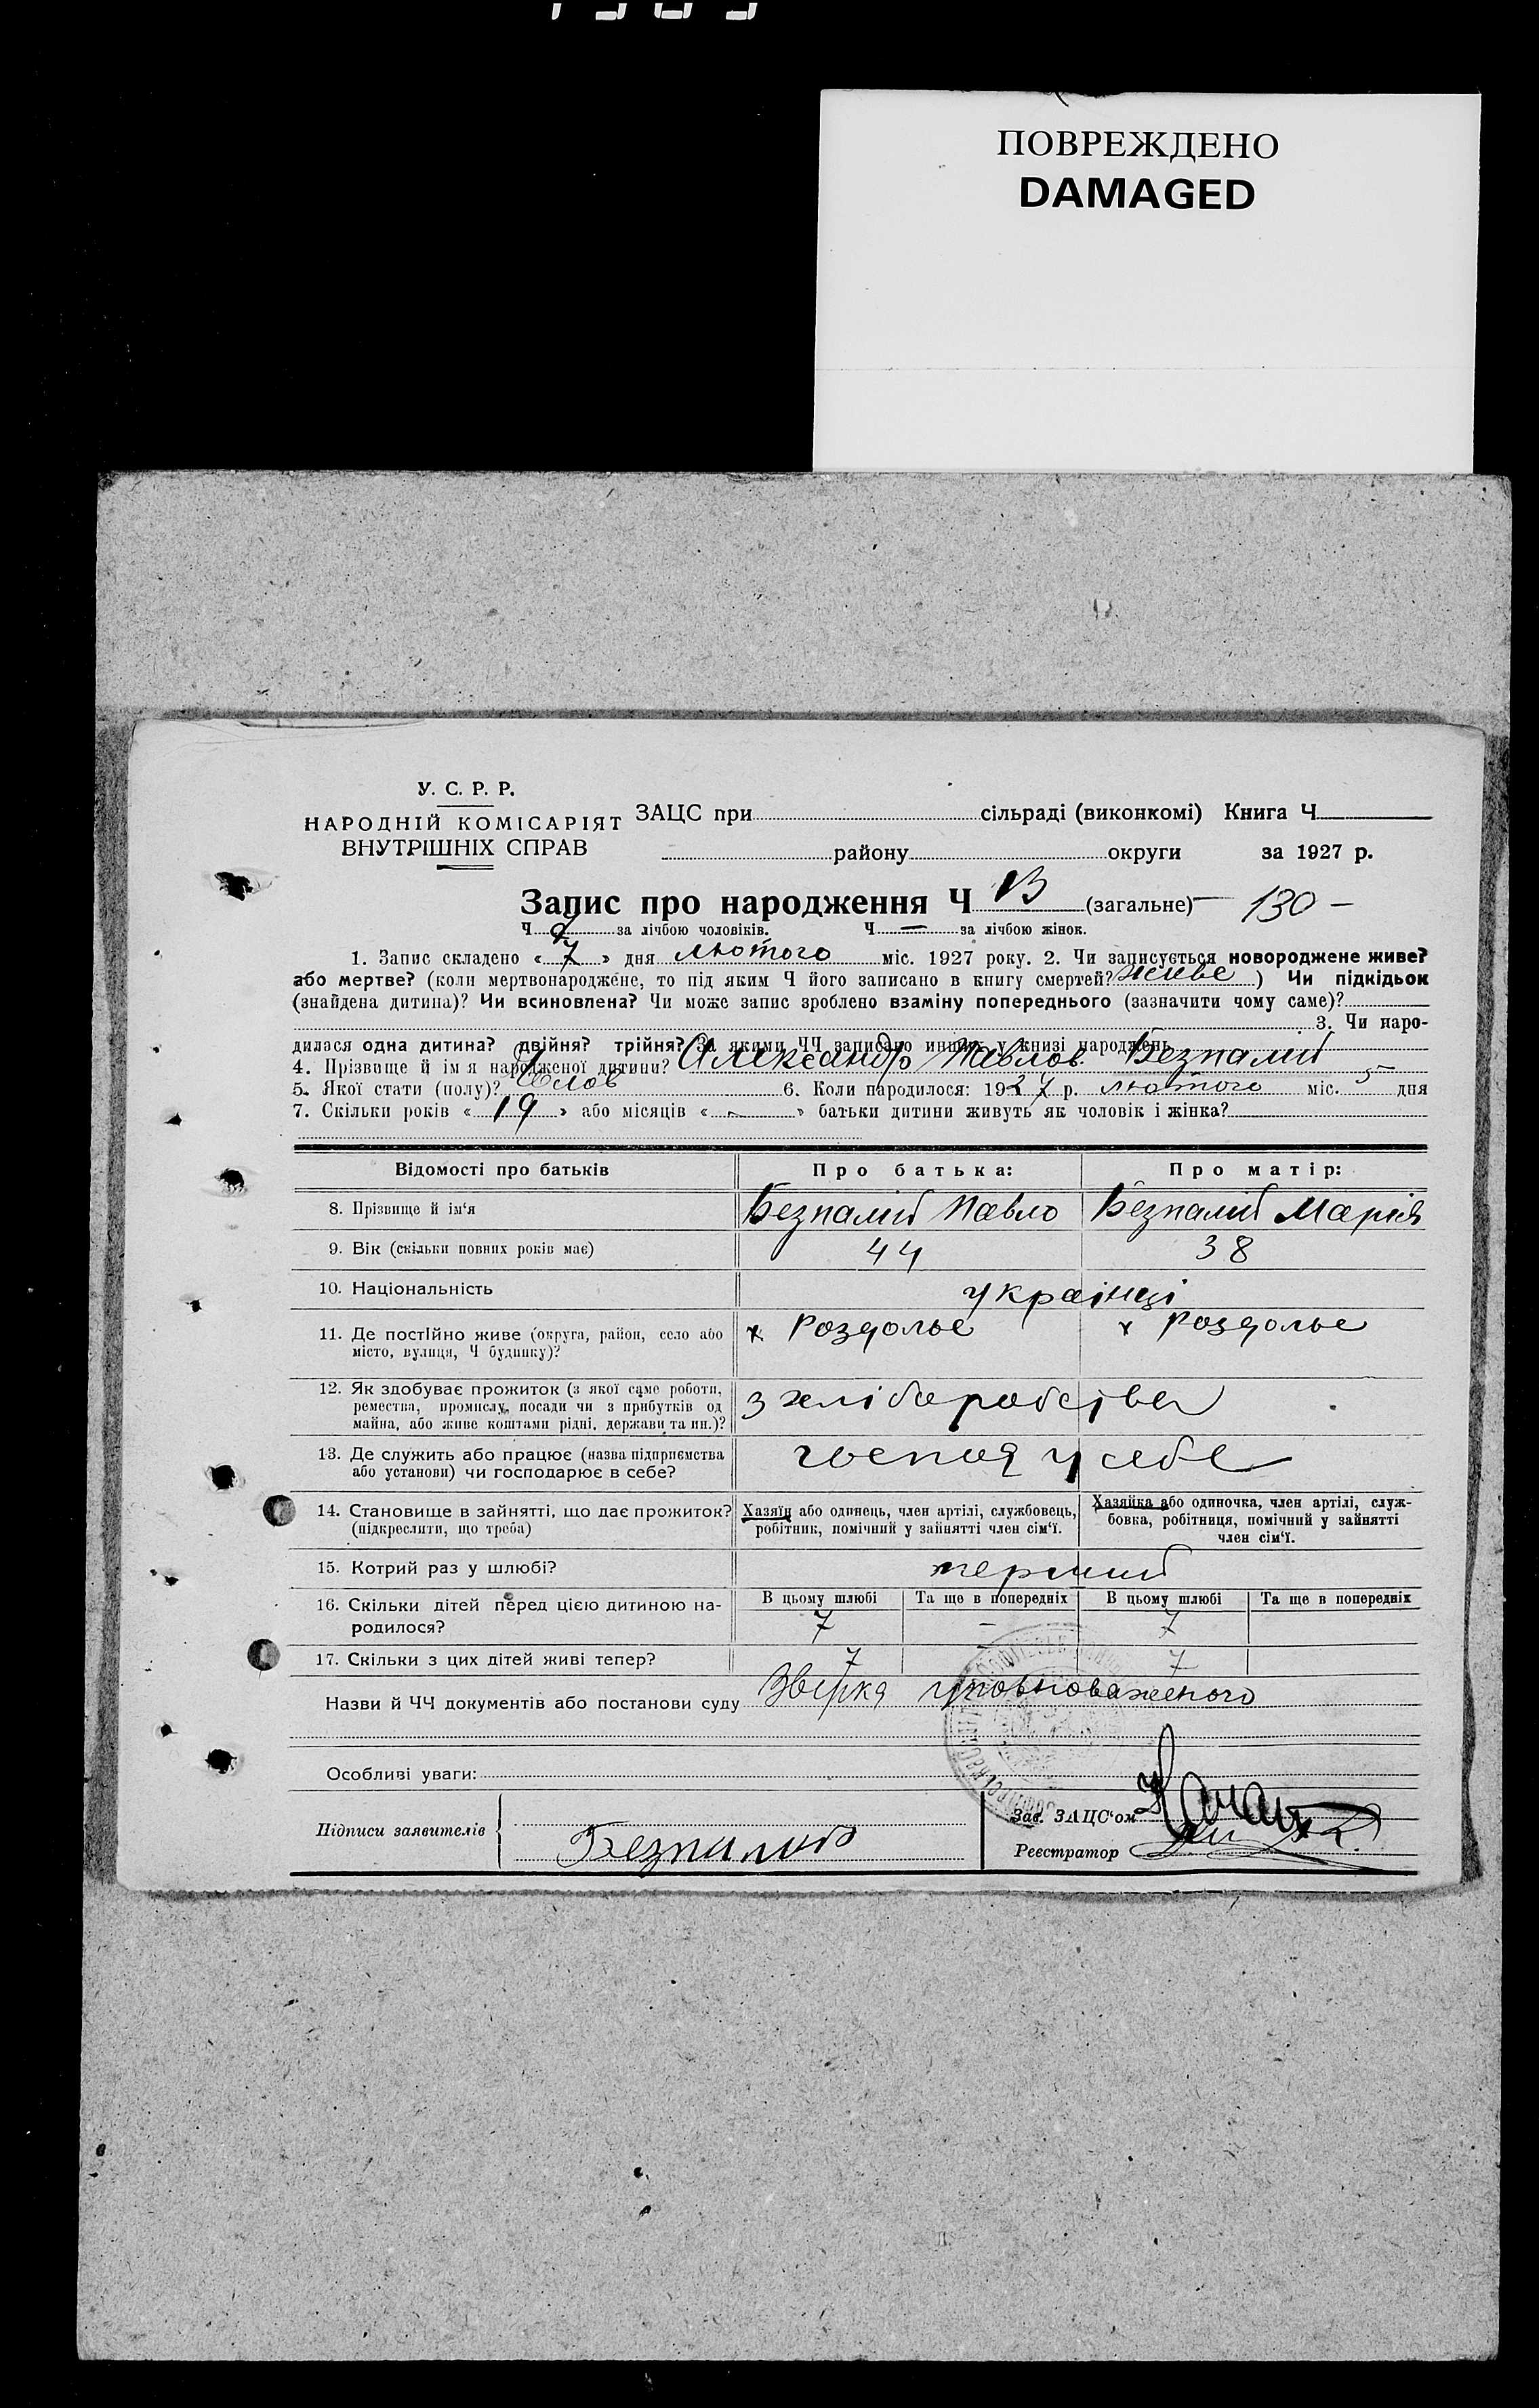 ПОВРЕЖДЕНО
DAMAGED
У. С. Р. Р.
НАРОДНІЙ КОМІСАРІЯТ
ВНУТРІШНІХ СПРАВ
ЗАЦС при сільраді (виконкомі) Книга Ч
району округи за 1927 р.
Запис про народження Ч 13 (загальне) 130 —
Ч 7 за лічбою чоловіків. Ч — за лічбою жінок.
1. Запис складено « 7 » дня лютого міс. 1927 року. 2. Чи записується новороджене живе?
або мертве? (коли мертвонароджене, то під яким Ч його записано в книгу смертей? живе ) Чи підкідьок
(знайдена дитина)? Чи всиновлена? Чи може запис зроблено взаміну попереднього (зазначити чому саме)?
3. Чи наро-
дилася одна дитина? двійня? трійня? За якими ЧЧ записано инших у книзі народжень
4. Прізвище й ім я народженої дитини? Олександр Павлов. Безпалий
5. Якої стати (полу)? Челов 6. Коли народилося: 1927 р. лютого міс. 5 дня
7. Скільки років « 19 » або місяців « - » батьки дитини живуть як чоловік і жінка?
Відомості про батьків Про батька: Про матір:
8. Прізвище й ім'я Безпалий Павло Безпалий Марія
9. Вік (скільки повних років має) 44 38
10. Національність українці
11. Де постІйно живе (округа, район, село або х Роздолье х Роздолье
місто, вулиця, Ч будинку)?
12. Як здобуває прожиток (з якої саме роботи,
ремества, промислу, посади чи з прибутків од
майна, або живе коштами рідні, держави та ин.)? з хліборобства
13. Де служить або працює (назва підприємства
або установи) чи господарює в себе? у себе
14. Становище в зайнятті, що дає прожиток?
(підкреслити, що треба)
Хазяїн або одинець, член артілі, службовець,
робітник, помічний у зайнятті член сім'ї.
Хазяйка або одиночка, член артілі, служ-
бовка, робітниця, помічний у зайнятті
член сім'ї.
15. Котрий раз у шлюбі? перший
16. Скільки дітей перед цією дитиною на-
родилося?
В цьому шлюбі Та ще в попередніх В цьому шлюбі Та ще в попередніх
7 – 7
17. Скільки з цих дітей живі тепер? 7 7
Назви й ЧЧ документів або постанови суду Звірка уповноваженого
Особливі уваги:
Підписи заявителів Безпалий
Зав. ЗАЦС'ом
Реєстратор